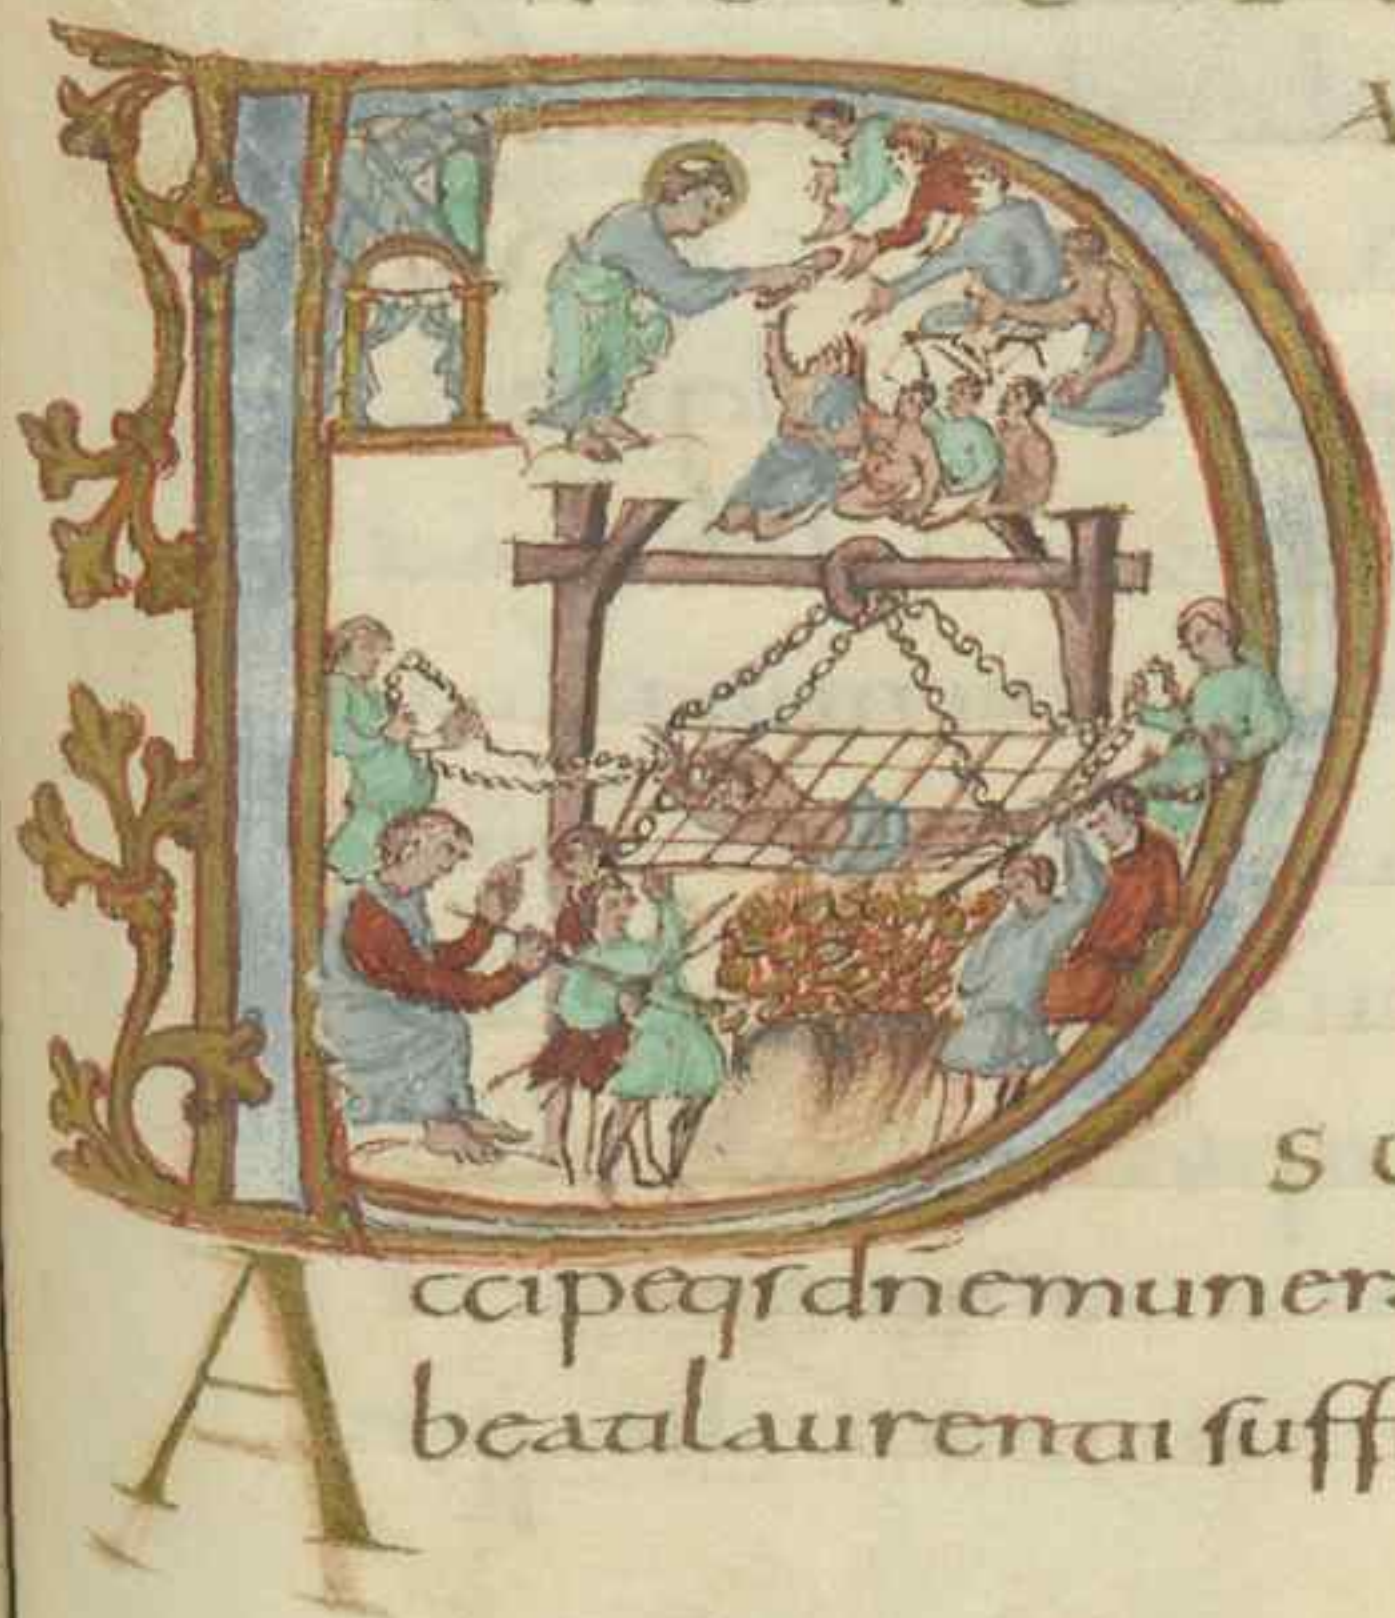 D
S
Accipe qs dn̄e muner
beati laurentii suff